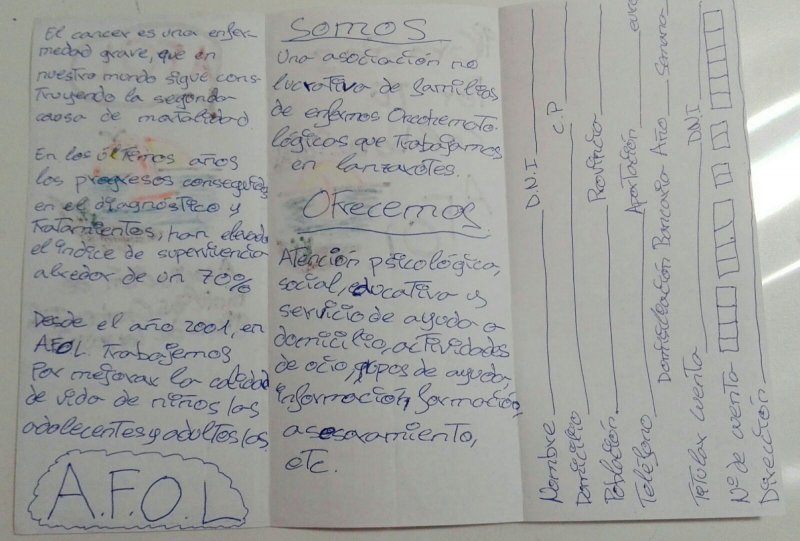 El cancer es una enfer-
medad grave, que en
nuestro mundo sigue cons-
truyendo la segunda
causa de mortalidad
En los últimos años
los progresos conseguidos
en el diagnóstico y
tratamientos, han elevado
el índice de supervivencia
alrededor de un 70%
Desde el año 2001, en
AFOL Trabajamos
Por mejorar la calidad
de vida de niños/as
adolecentes y adultos/as.
A.F.O.L
Somos
Una asociación no
lucrativa, de familias
de enfermos Oncohemato-
lógicos que Trabajamos
en lanzarotes.
Ofrecemos
Atención psicológica,
social, educativa y
servicio de ayuda a
domicilio, actividades
de ocio, grupos de ayuda,
información, formación,
asesoramiento,
etc.
Nombre D.N.I
Domicilio C.P
Población Provincia
Teléfono Aportación euro
Domiciliación Bancaria Año Semana
Titular cuenta DNI
Nº de cuenta
Dirección